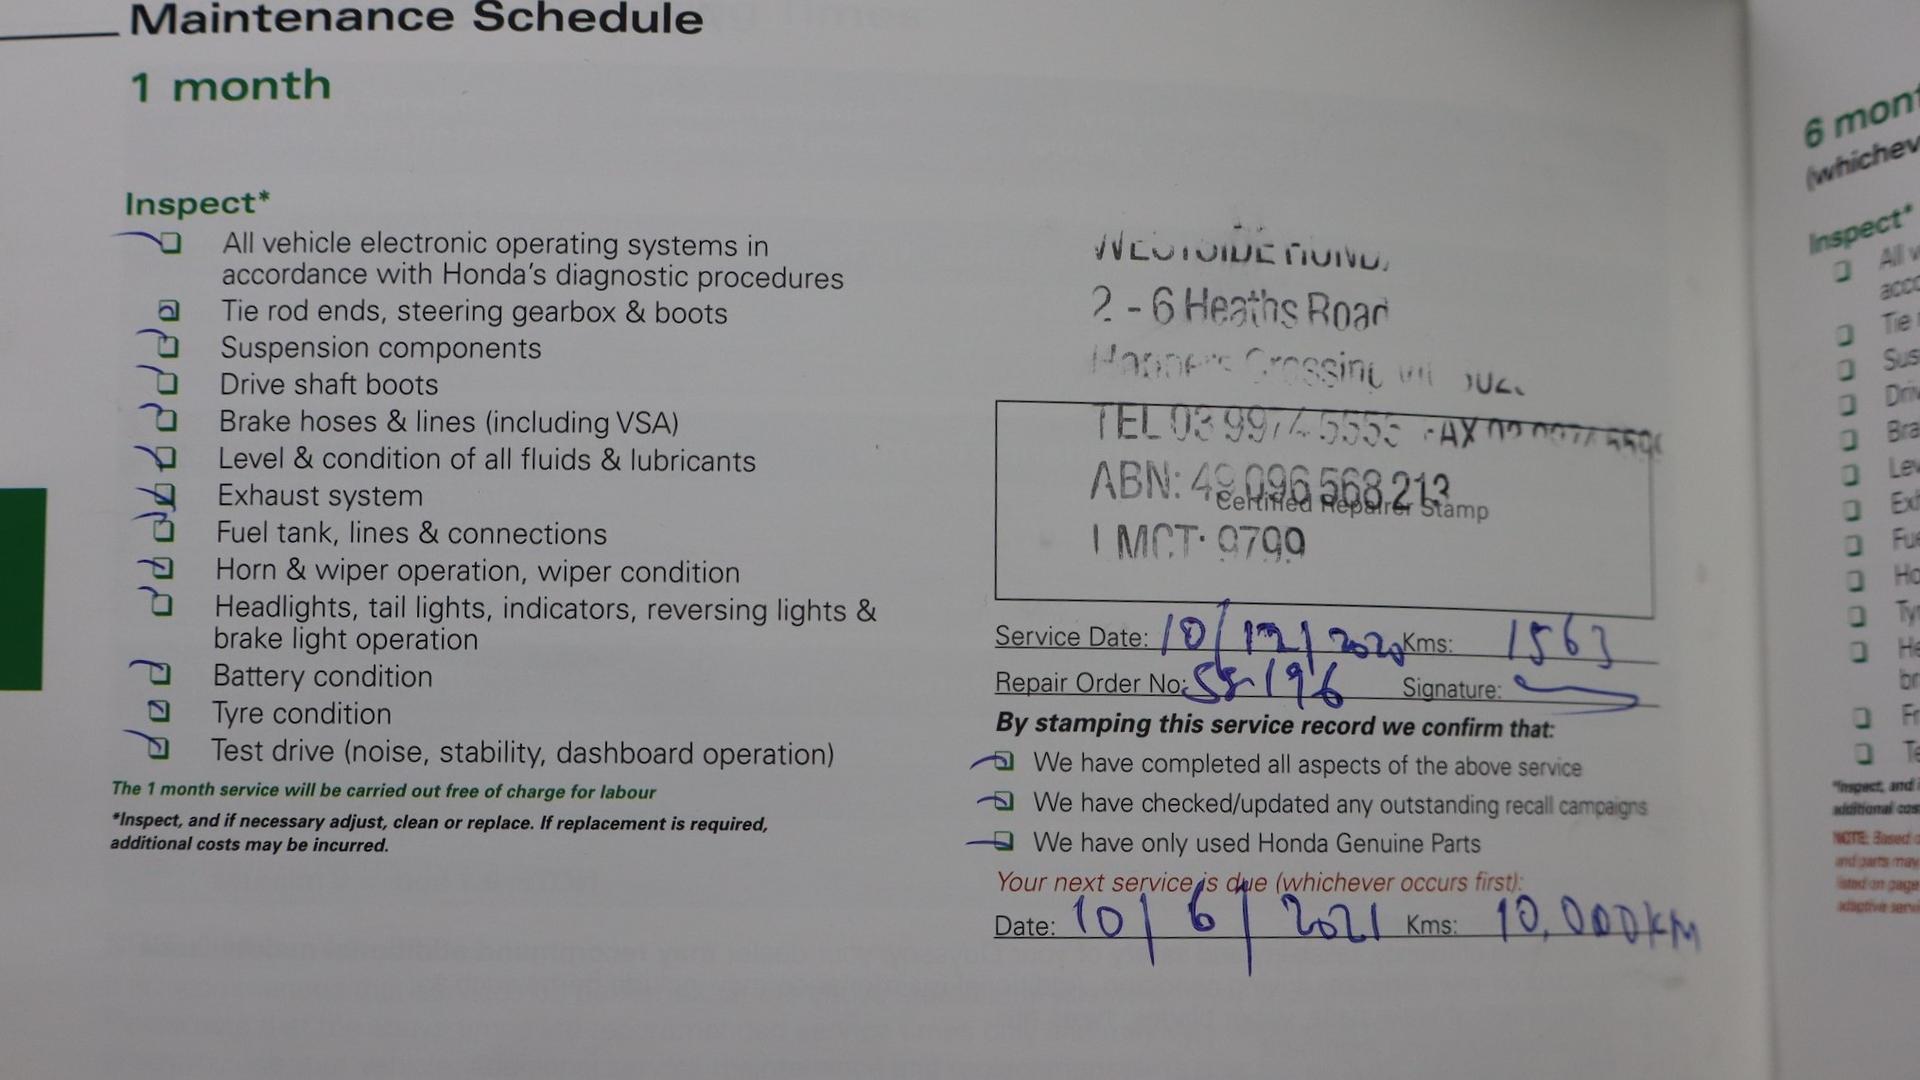 Maintenance Schedule
1 month
Inspect*
All vehicle electronic operating systems in
accordance with Honda's diagnostic procedures
Tie rod ends, steering gearbox & boots
Suspension components
Drive shaft boots
Brake hoses & lines (including VSA)
Level & condition of all fluids & lubricants
Exhaust system
Fuel tank, lines & connections
Horn & wiper operation, wiper condition
Headlights, tail lights, indicators, reversing lights &
brake light operation
Battery condition
Tyre condition
Test drive (noise, stability, dashboard operation)
The 1 month service will be carried out free of charge for labour
*Inspect, and if necessary adjust, clean or replace. If replacement is required,
additional costs may be incurred.
WESTSIDE HONDA
2 - 6 Heaths Road
Crossing
TEL 03 9974 5555 FAX
ABN: 49 096 568 213
Certified Repairer Stamp
LMCT: 9799
Service Date: 10/12/2020 Kms: 1563
Repair Order No: Signature:
By stamping this service record we confirm that:
We have completed all aspects of the above service
We have checked/updated any outstanding recall campaigns
We have only used Honda Genuine Parts
Your next service is due (whichever occurs first):
Date: 10/6/2021 Kms: 10,000KM
6 mont
(whichev
Inspect*
All v
acco
Tie r
Sus
Driv
Bra
Lev
Exh
Fue
Ho
Tyr
He
br
Fr
Te
*Inspect, and i
additional cos
NOTE: Based o
and parts may
listed on page
adaptive servi